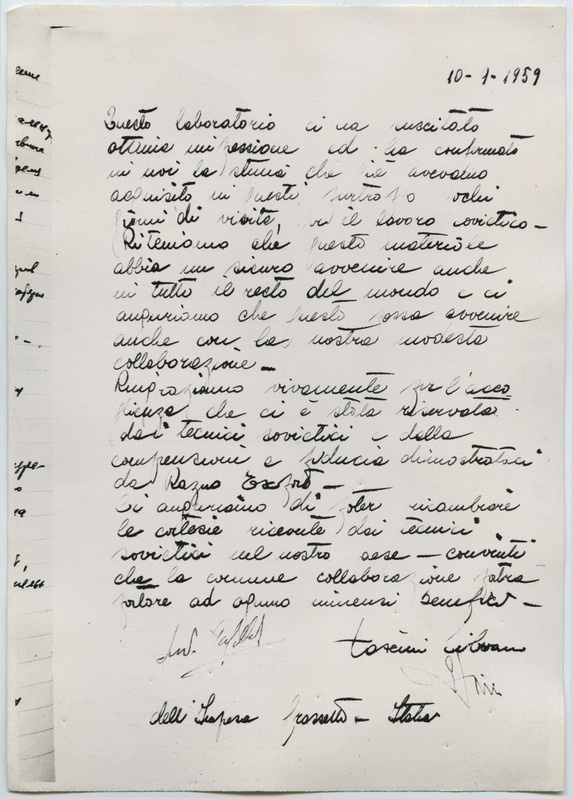 10-9-1959
Questo laboratorio ci ha suscitato
ottima impressione ed ha confermato
in noi la stima che già avevamo
acquisito in questi, purtroppo pochi
giorni di visite, per il lavoro sovietico -
Riteniamo che questo materiale
abbia un sicuro avvenire anche
in tutto il resto del mondo e ci
auguriamo che questo possa avvenire
anche con la nostra modesta
collaborazione -
Ringraziamo vivamente per l'acco-
glienza che ci è stata riservata
dai tecnici sovietici e della
comprensione e fiducia dimostrataci
da Razno Export -
Ci auguriamo di poter ricambiare
le cortesie ricevute dai tecnici
sovietici nel nostro paese - convinti
che la comune collaborazione potrà
portare ad ognuno immensi benefici -
dell'Impresa Grassetto - Italia